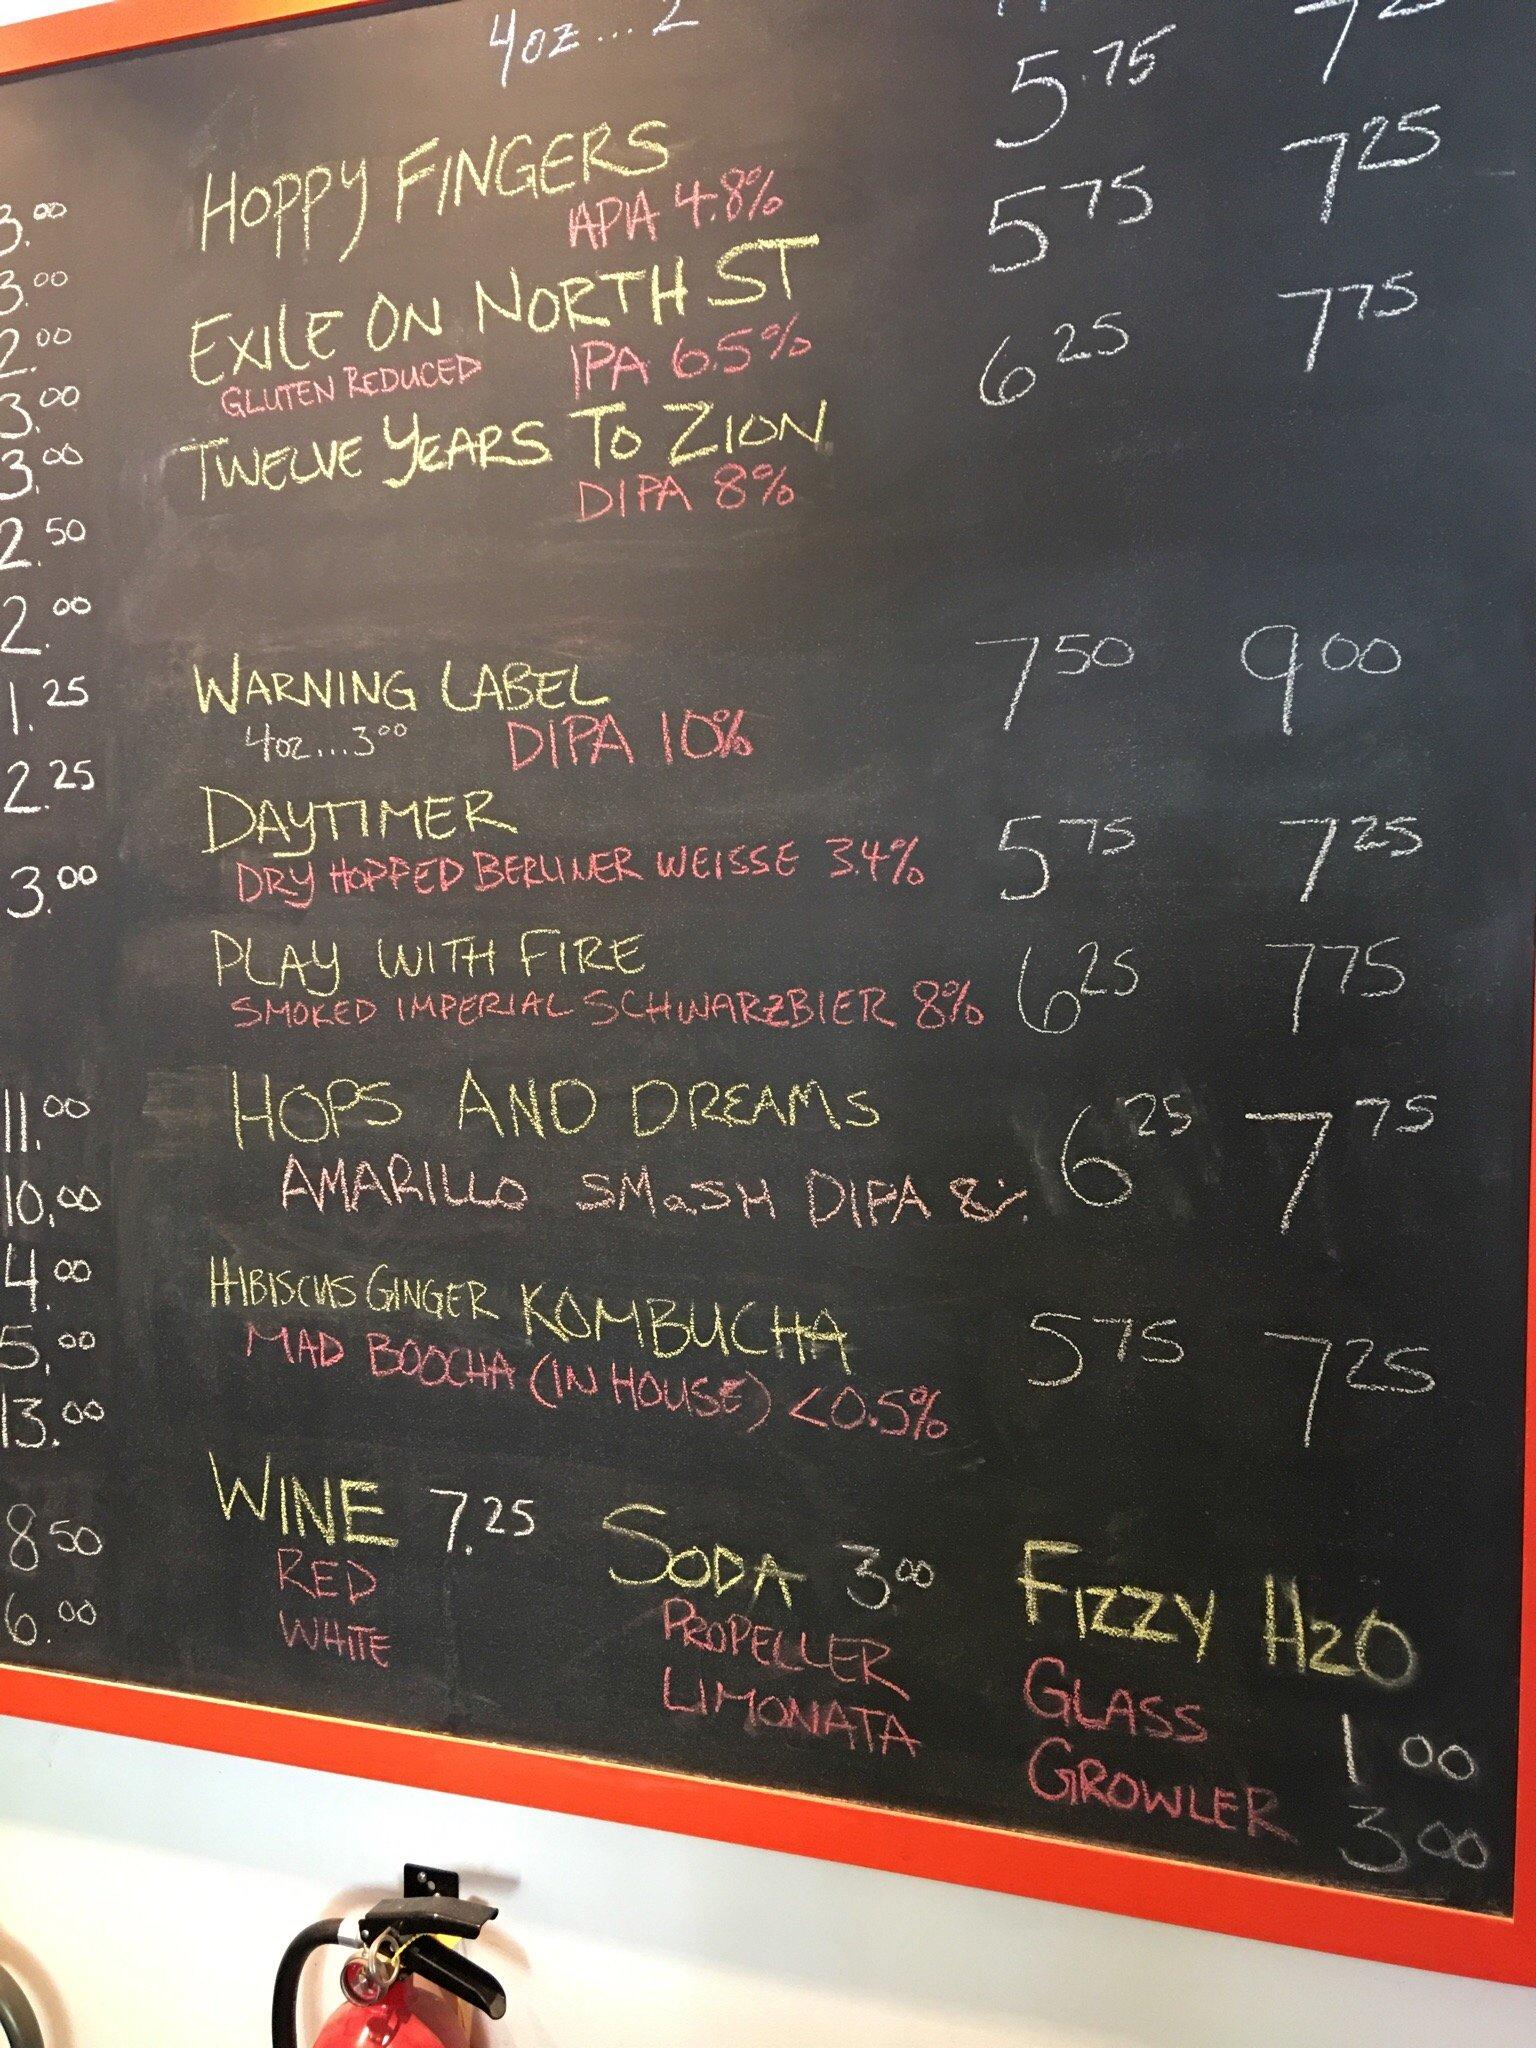 4oz...2
5.75
HOPPY FINGERS 5 75 7 25
APA 4.8%
EXILE ON NORTH ST 6 25 7 75
GLUTEN REDUCED IPA 6.5%
TWELVE YEARS TO ZION
DIPA 8%
WARNING LABEL 7 50 9 00
4oz...3 00 DIPA 10%
DAYTIMER 5 75 7 25
DRY HOPPED BERLINER WEISSE 3.4%
PLAY WITH FIRE 6 25 7 75
SMOKED IMPERIAL SCHWARZBIER 8%
HOPS AND DREAMS 6 25 7 75
AMARILLO SMaSH DIPA 8%
HIBISCUS GINGER KOMBUCHA 5 75 7 25
MAD BOOCHA (IN HOUSE) <0.5%
WINE 7.25
RED
WHITE
SODA 3 00
PROPELLER
LIMONATA
FIZZY H2O
GLASS 1 00
GROWLER 3 00
3.00
3.00
2.00
3.00
3.00
2.50
2.00
1.25
2.25
3.00
11.00
10.00
4.00
5.00
13.00
8 50
6.00